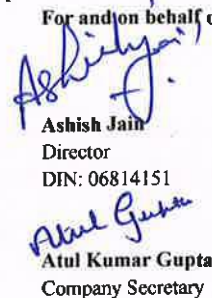 For and on behalf o
Ashish Jain
Director
DIN: 06814151
Atul Gupta
Atul Kumar Gupta
Company Secretary